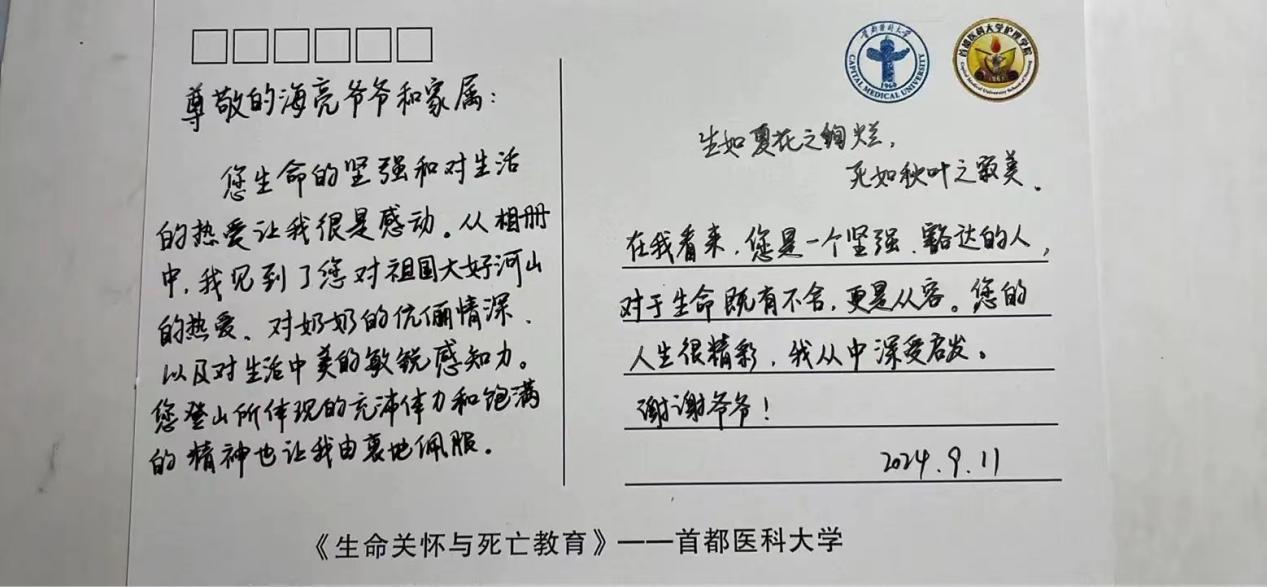 尊敬的海亮爷爷和家属：
您生命的坚强和对生活
的热爱让我很是感动。从相册
中，我见到了您对祖国大好河山
的热爱、对奶奶的伉俪情深、
以及对生活中美的敏锐感知力。
您登山所体现的充沛体力和饱满
的精神也让我由衷地佩服。
首都医科大学
CAPITAL MEDICAL UNIVERSITY
1960
首都医科大学护理学院
Capital Medical University School of Nursing
生如夏花之绚烂，
死如秋叶之寂美。
在我看来，您是一个坚强、豁达的人，
对于生命既有不舍，更是从容。您的
人生很精彩，我从中深受启发。
谢谢爷爷！
2024.9.11
《生命关怀与死亡教育》——首都医科大学